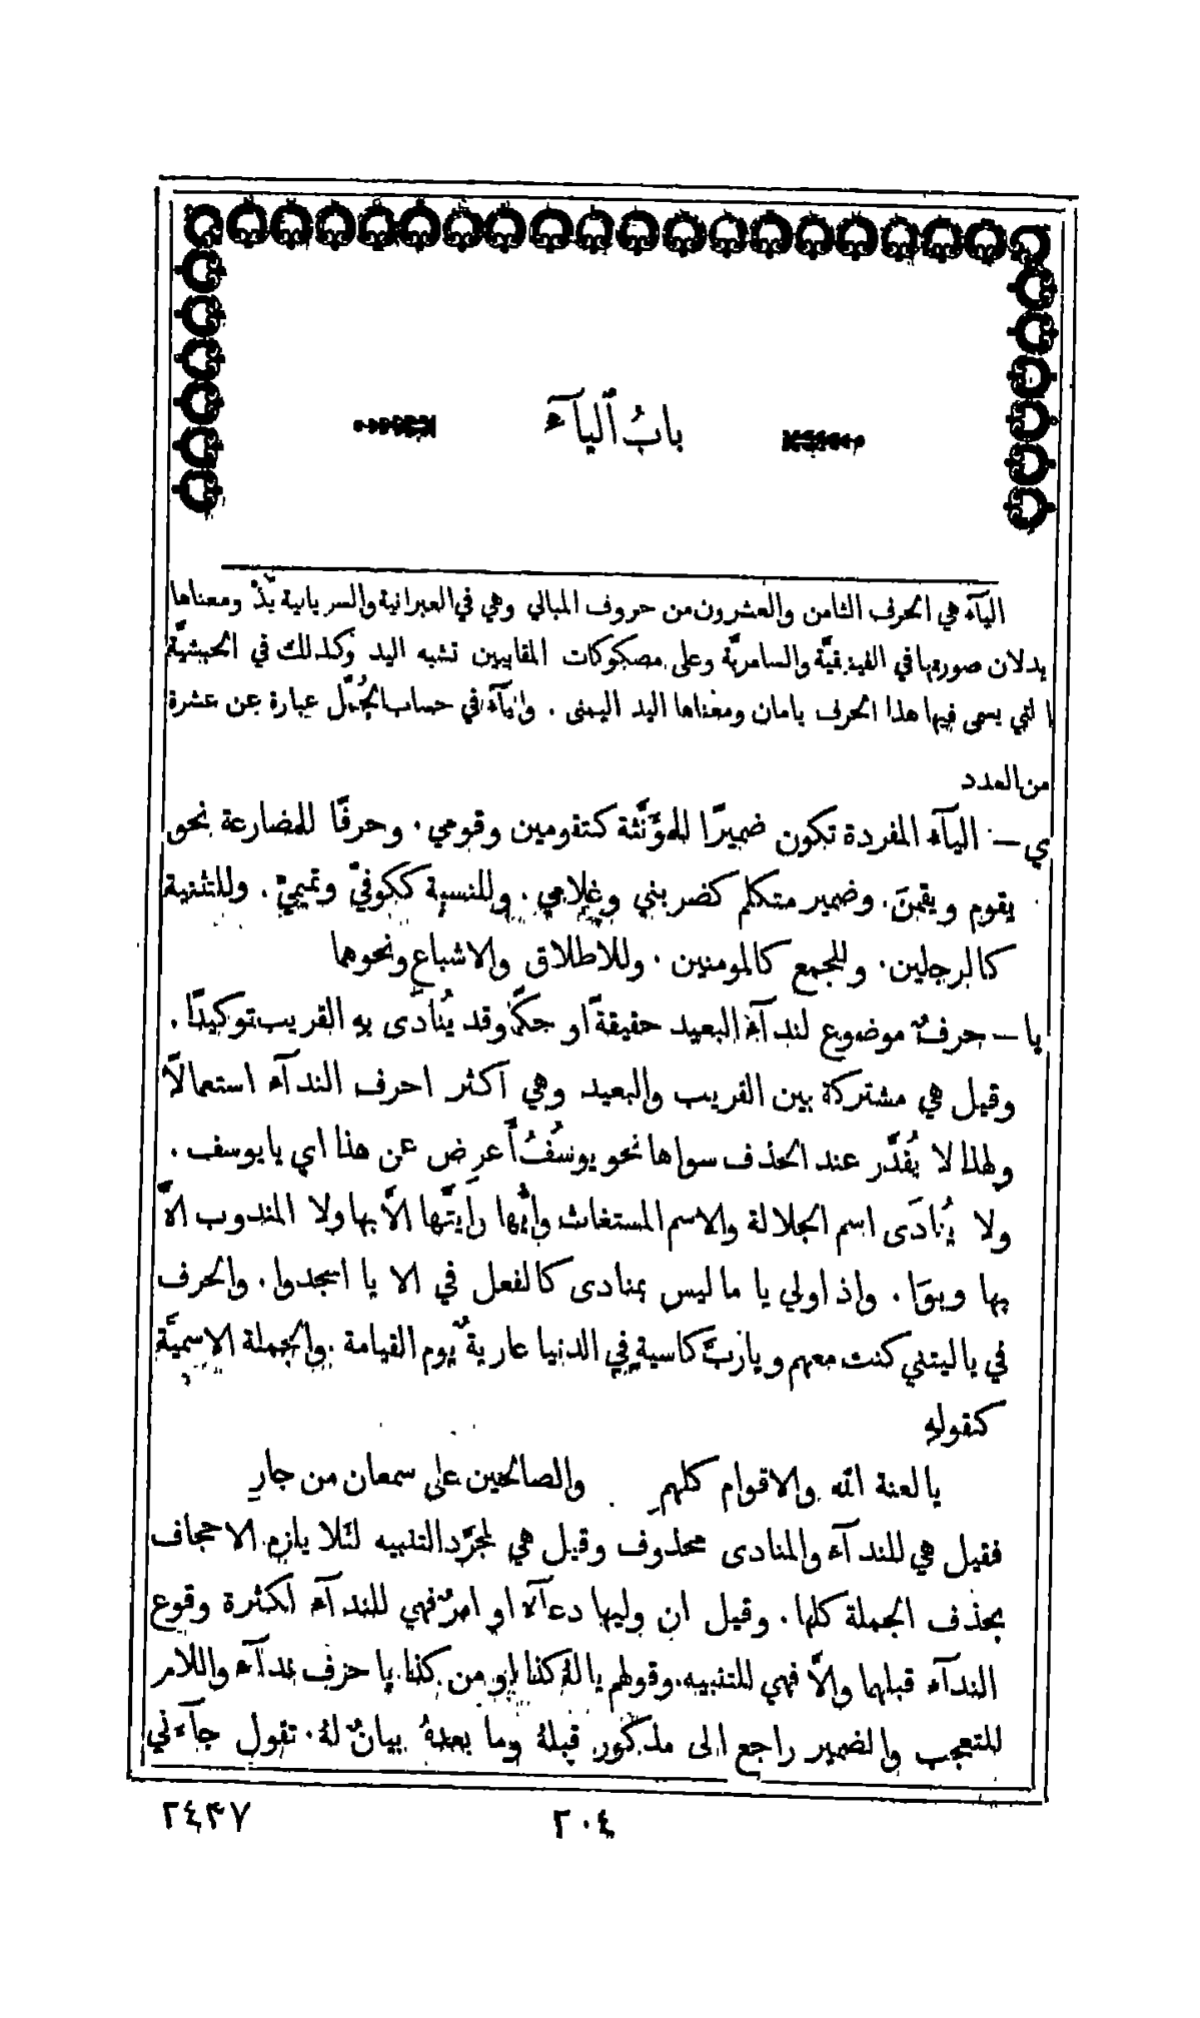 بابُ ٱليآء
اليآء هي الحرف الثامن والعشرون من حروف المباني وهي في العبرانية والسريانية يُدْ ومعناها
يد لان صورتها في الفينيقيَّة والسامريَّة وعلى مصكوكات المقابيين تشبه اليد وكذلك في الحبشيَّة
التي يسمى فيها هذا الحرف يامان ومعناها اليد اليمنى . واليآء في حساب الجُمَّل عبارة عن عشرة
من العدد
ي – اليآء المفردة تكون ضميرًا للمؤَنَّثة كتقومين وقومي . وحرفًا للمضارعة نحو
يقوم ويقمنَ . وضمير متكلم كضربني وغلامي . وللنسبة ككوفيّ وتميميّ . وللتثنية
كالرجلين . وللجمع كالمومنين . وللاطلاق والاشباع ونحوهما
يا – حرفٌ موضوع لندآء البعيد حقيقةً او حكمًا وقد يُنادَى به القريب توكيدًا .
وقيل هي مشتركة بين القريب والبعيد وهي اكثر احرف الندآء استعمالاً
ولهذا لا يُقدَّر عند الحذف سواها نحو يوسُفُ أَعرِض عن هذا اي يا يوسف .
ولا يُنادَى اسم الجلالة والاسم المستغاث وأَيُّها وأَيَّتها الاَّ بها ولا المندوب الاَّ
بها وبوَا . واذا ولي يا ما ليس بمنادى كالفعل في الا يا اسجدوا . والحرف
في يا ليتني كنت معهم ويا رُبَّ كاسيةٍ في الدنيا عاريةٌ يوم القيامة . والجملة الاسميَّة
كقولهِ
يا لعنة الله والاقوام كلهم . والصالحين على سمعان من جارِ
فقيل هي للندآء والمنادى محذوف وقيل هي لمجرَّد التنبيه لئلا يلزم الاحجاف
بحذف الجملة كلها . وقيل ان وليها دعآء او امرٌ فهي للندآء لكثرة وقوع
الندآء قبلهما والاَّ فهي للتنبيه . وقولهم يا لهُ كذا او من كذا يا حرف ندآء واللام
للتعجب والضمير راجع الى مذكور قبلهُ وما بعدهُ بيانٌ لهُ . تقول جآءني
٢٠٤
٢٤٣٧